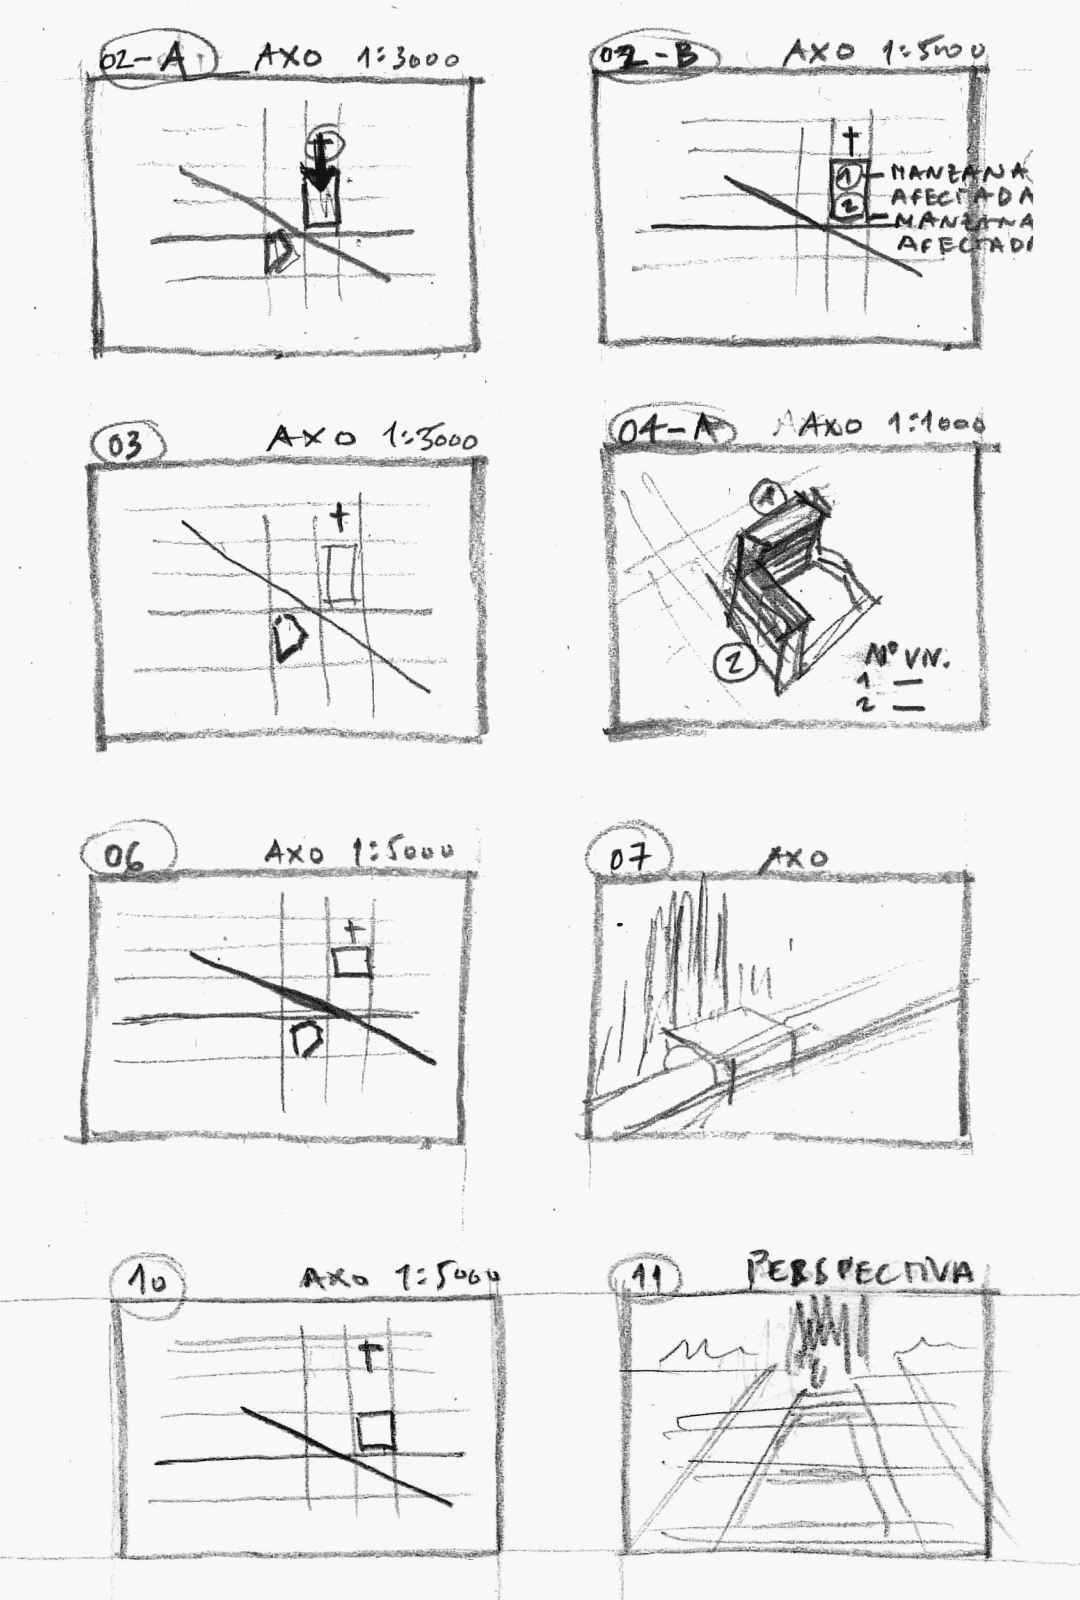 02-A AXO 1:3000
02-B AXO 1:5000
1 MANZANA
AFECTADA
2 MANZANA
AFECTADA
03 AXO 1:5000
04-A AXO 1:1000
1
2
Nº VN.
1 —
2 —
06 AXO 1:5000
07 AXO
10 AXO 1:5000
11 PERSPECTIVA